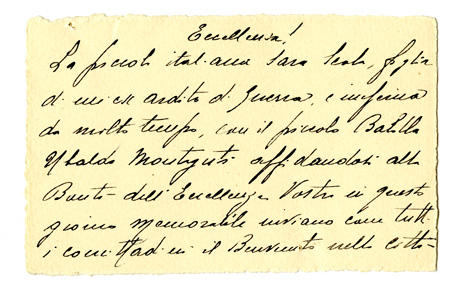 Eccellenza!
La piccola italiana Sara Scala, figlia
di un ex ardito di Guerra, e inferma
da molto tempo, con il piccolo Balilla
Ubaldo affidandosi alla
Bontà dell'Eccellenza Vostra in questo
giorno memorabile inviano com tutti
i comittadini il Benvenuto nella citta-